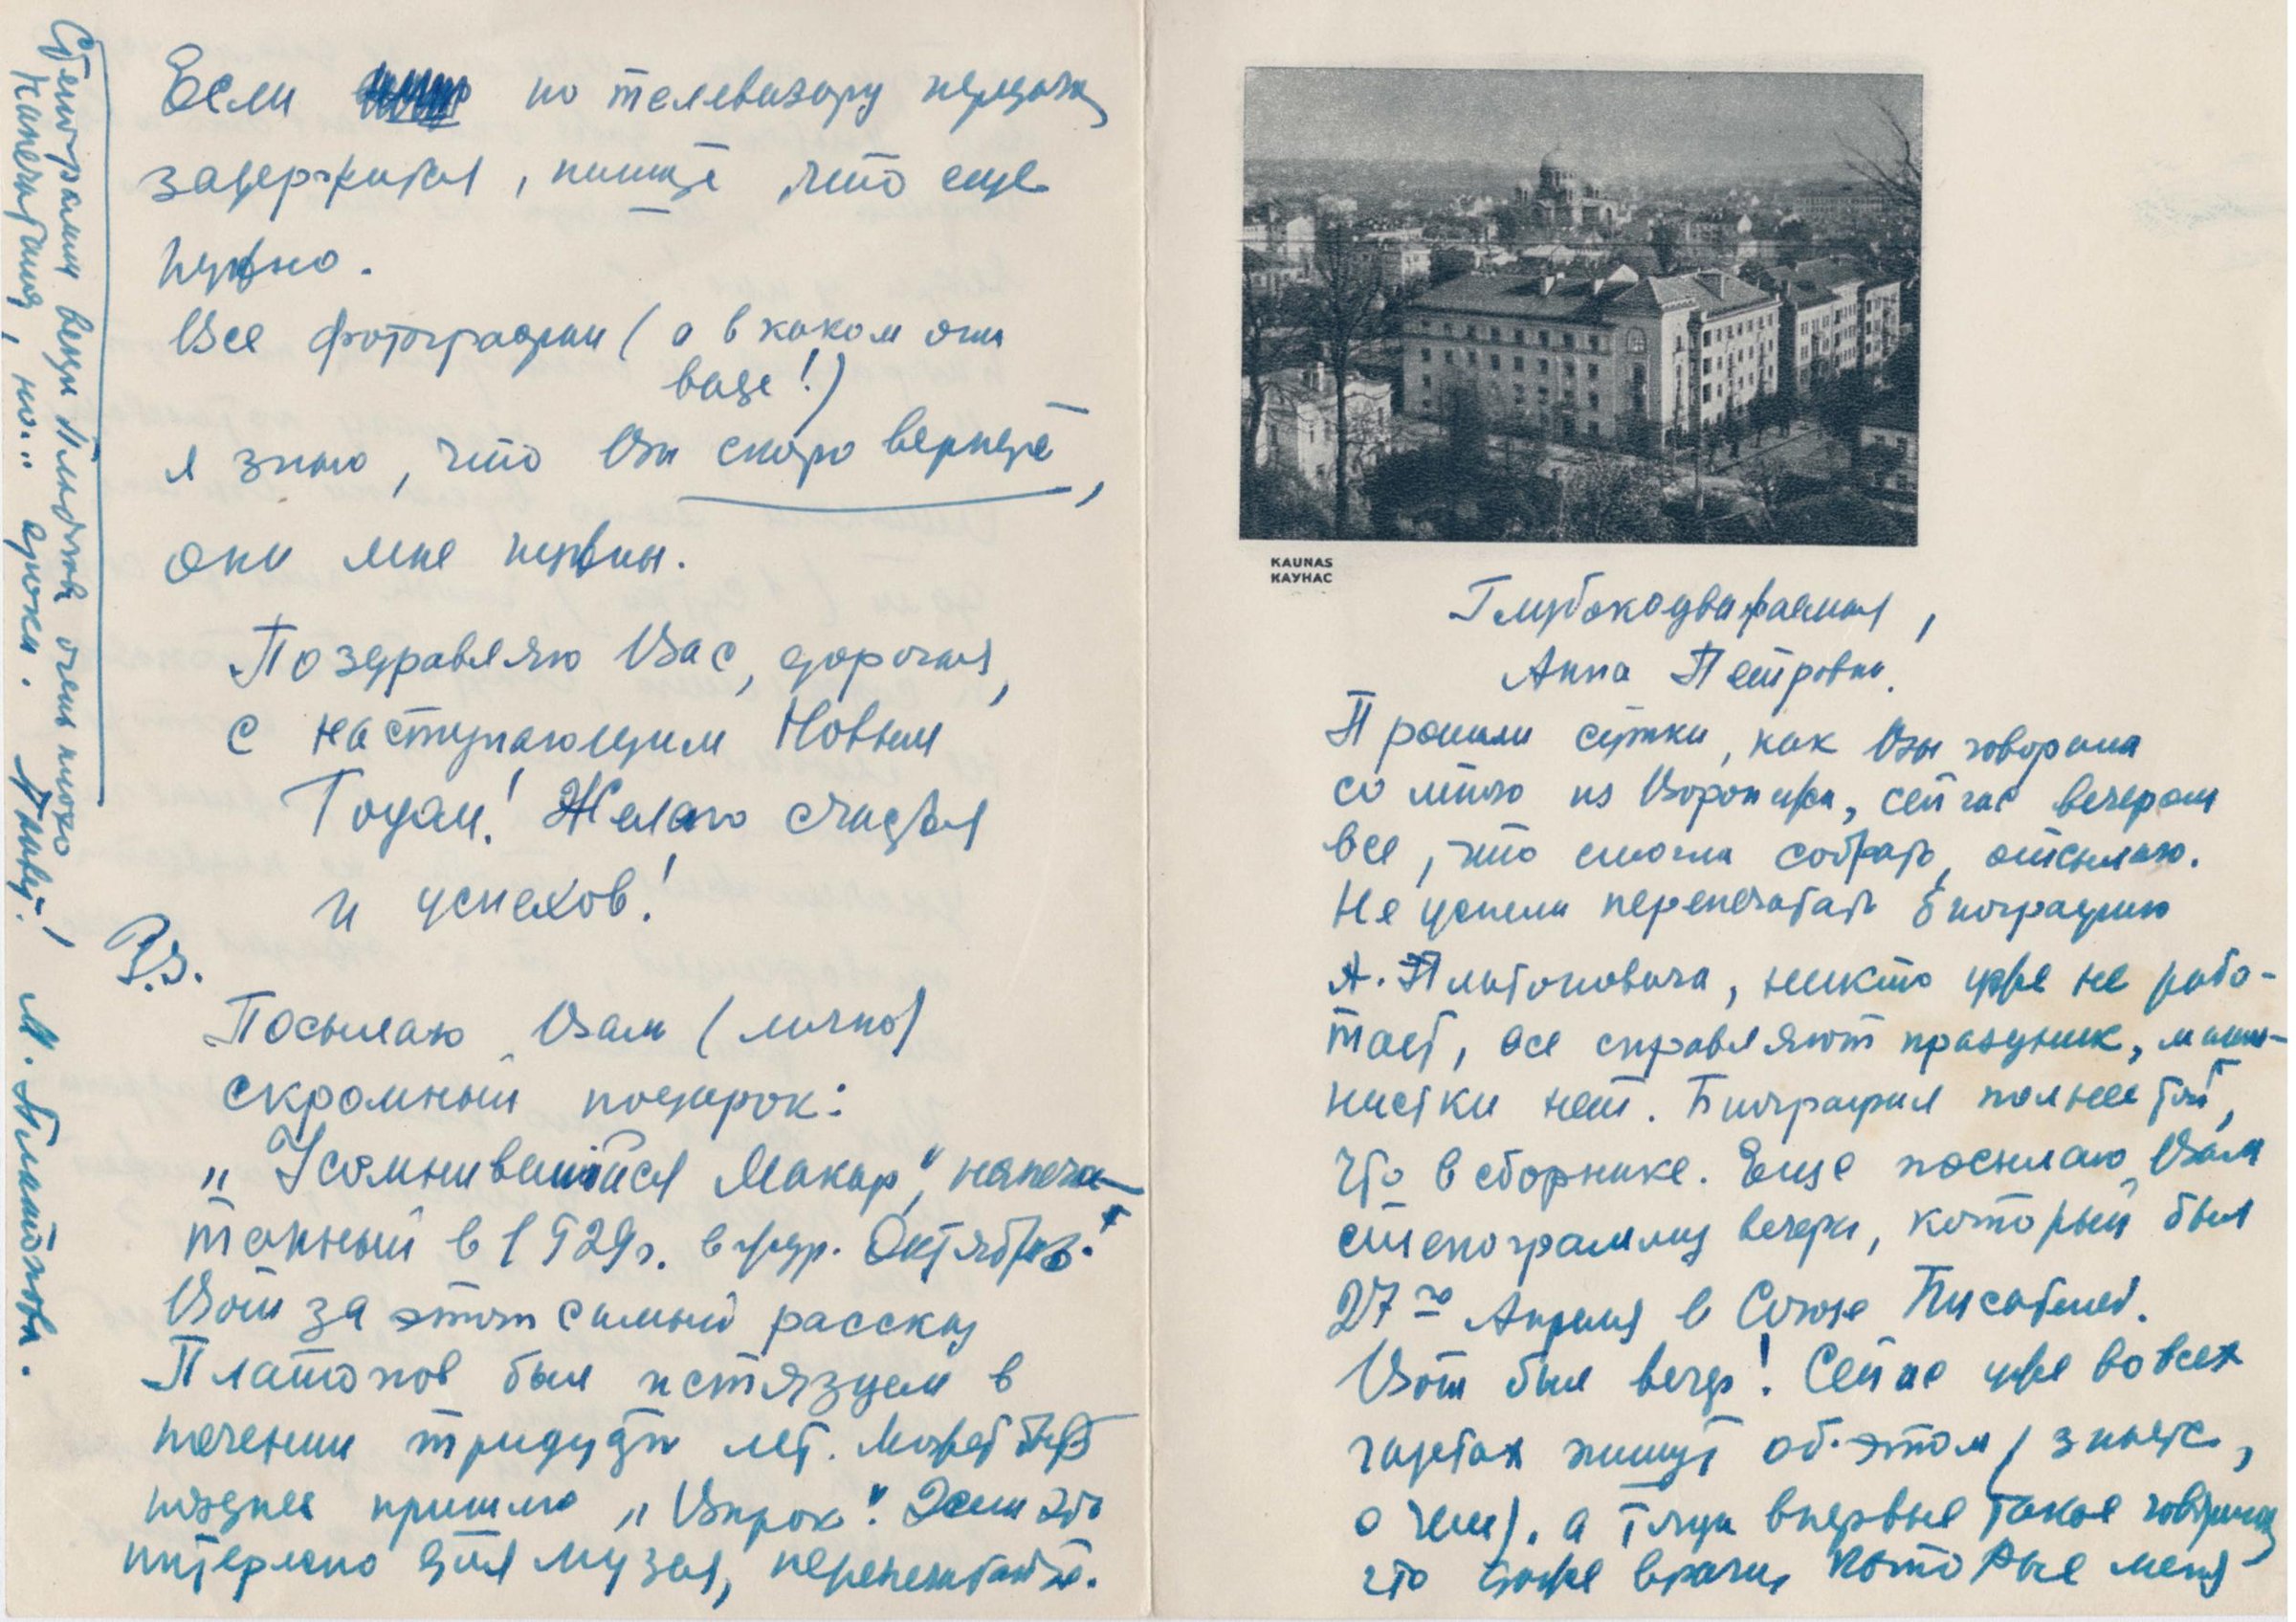 KAUNAS
КАУНАС
Глубокоуважаемая,
Анна Петровна.
Прошли сутки, как Вы говорили
со мною из Воронежа, сейчас вечером
все, что смогла собрать, отсылаю.
Не успели перепечатать биографию
А. Платоновича, никто уже не рабо-
тает, все справляют праздник, маши-
нистки нет. Биография полнее той,
что в сборнике. Еще посылаю Вам
стенограмму вечера, который был
27го Апреля в Союзе Писателей.
Вот был вечер! Сейчас уже во всех
газетах пишут об этом (знаете,
о чем), а тогда впервые такое говорили,
что даже врачи, которые меня
Если по телевизору передача
задержится, пишите, что еще
нужно.
Все фотографии (а в каком они
виде!)
я знаю, что Вы скоро вернете,
они мне нужны.
Поздравляю Вас, дорогая,
с наступающим Новым
Годом! Желаю счастья
и успехов!
P.S.
Посылаю Вам (лично)
скромный подарок:
„Усомнившийся Макар", напеча-
танный в 1929г. в жур. Октябрь.
Вот за этот самый рассказ
Платонов был истязуем в
течении тридцати лет. Может быть
позднее пришлю „Впрок". Если это
интересно для музея, перепечатайте.
Стенограмма вечера Платонова очень плохо
напечатана, но... сроки. Привет! М. Платонова.